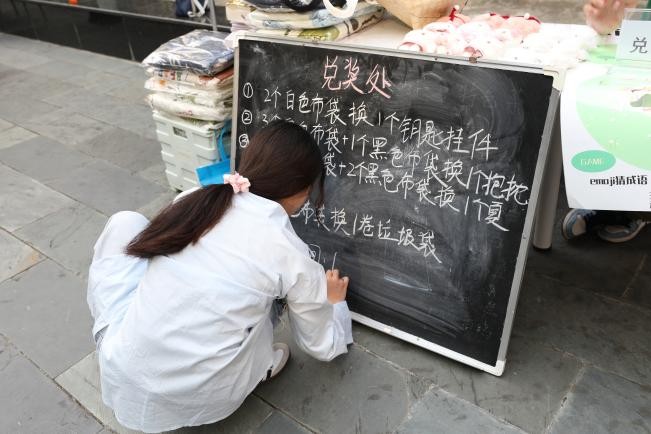 兑奖处
① 2个白色布袋换1个钥匙挂件
② 3个 布袋+1个黑色布袋换1个抱枕
③ 布袋+2个黑色布袋换1个夏
布袋换1卷垃圾袋
兑
GAME
emoji猜成语